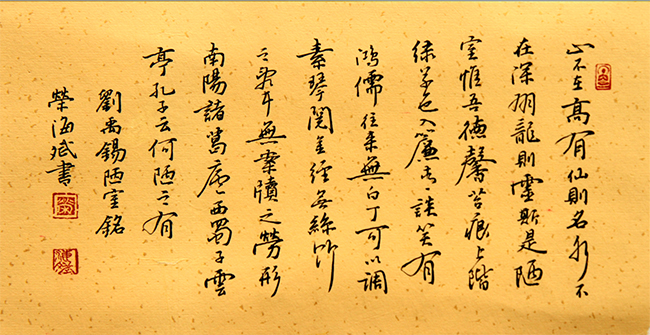 山不在高有仙則名水不
在深有龍則靈斯是陋
室惟吾德馨苔痕上階
綠草色入簾青談笑有
鴻儒往來無白丁可以調
素琴閱金經無絲竹
之亂耳無案牘之勞形
南陽諸葛廬西蜀子雲
亭孔子云何陋之有
劉禹錫陋室銘
榮海斌書